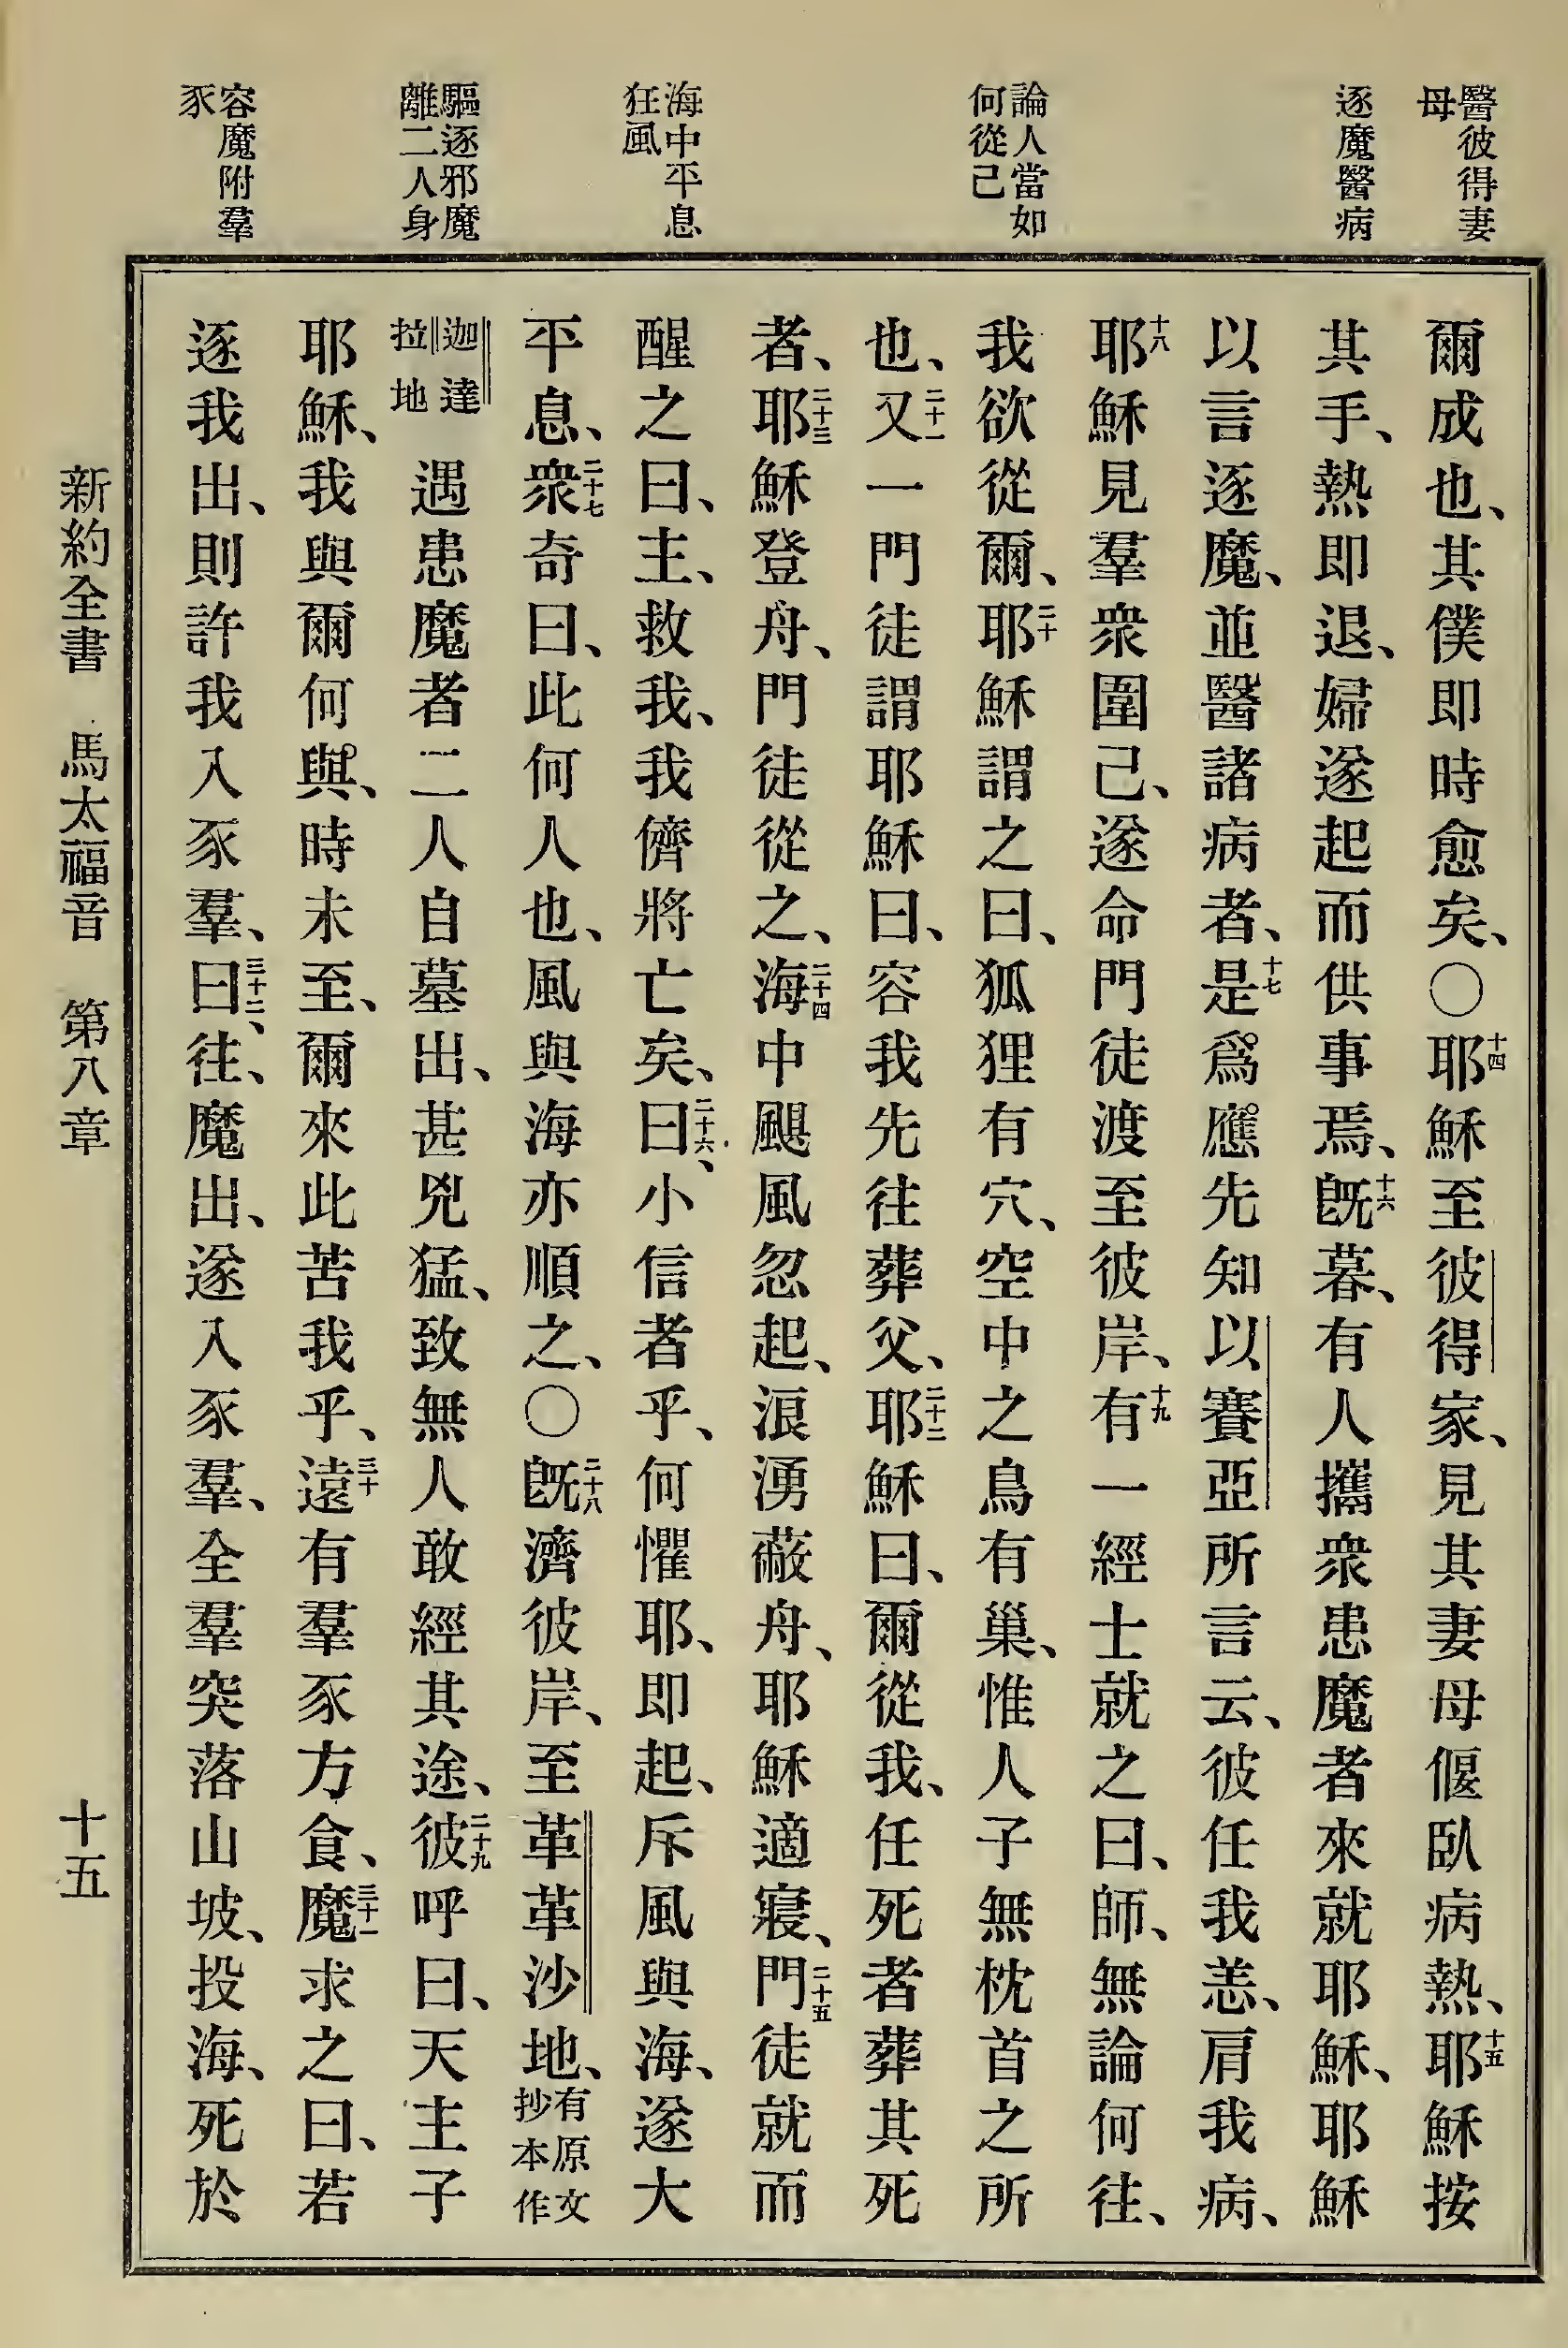 醫彼得妻
母
逐魔醫病
論人當如
何從己
海中平息
狂風
驅逐邪魔
離二人身
容魔附羣
豕
爾成也、其僕即時愈矣、〇十四耶穌至彼得家、見其妻母偃臥病熱、十五耶穌按
其手、熱即退、婦遂起而供事焉、十六旣暮、有人攜衆患魔者來就耶穌、耶穌
以言逐魔、並醫諸病者、十七是爲應先知以賽亞所言云、彼任我恙、肩我病、
十八耶穌見羣衆圍己、遂命門徒渡至彼岸、十九有一經士就之曰、師、無論何往、
我欲從爾、二十耶穌謂之曰、狐狸有穴、空中之鳥有巢、惟人子無枕首之所
也、二十一又一門徒謂耶穌曰、容我先往葬父、二十二耶穌曰、爾從我、任死者葬其死
者、二十三耶穌登舟、門徒從之、二十四海中颶風忽起、浪湧蔽舟、耶穌適寢、二十五門徒就而
醒之曰、主、救我、我儕將亡矣、二十六曰、小信者乎、何懼耶、即起、斥風與海、遂大
平息、二十七衆奇曰、此何人也、風與海亦順之、〇二十八旣濟彼岸、至革革沙地、有原文抄本作
迦達拉地遇患魔者二人自墓出、甚兇猛、致無人敢經其途、二十九彼呼曰、天主子
耶穌、我與爾何與、時未至、爾來此苦我乎、三十遠有羣豕方食、三十一魔求之曰、若
逐我出、則許我入豕羣、三十二曰、往、魔出、遂入豕羣、全羣突落山坡、投海、死於
新約全書 馬太福音 第八章 十五